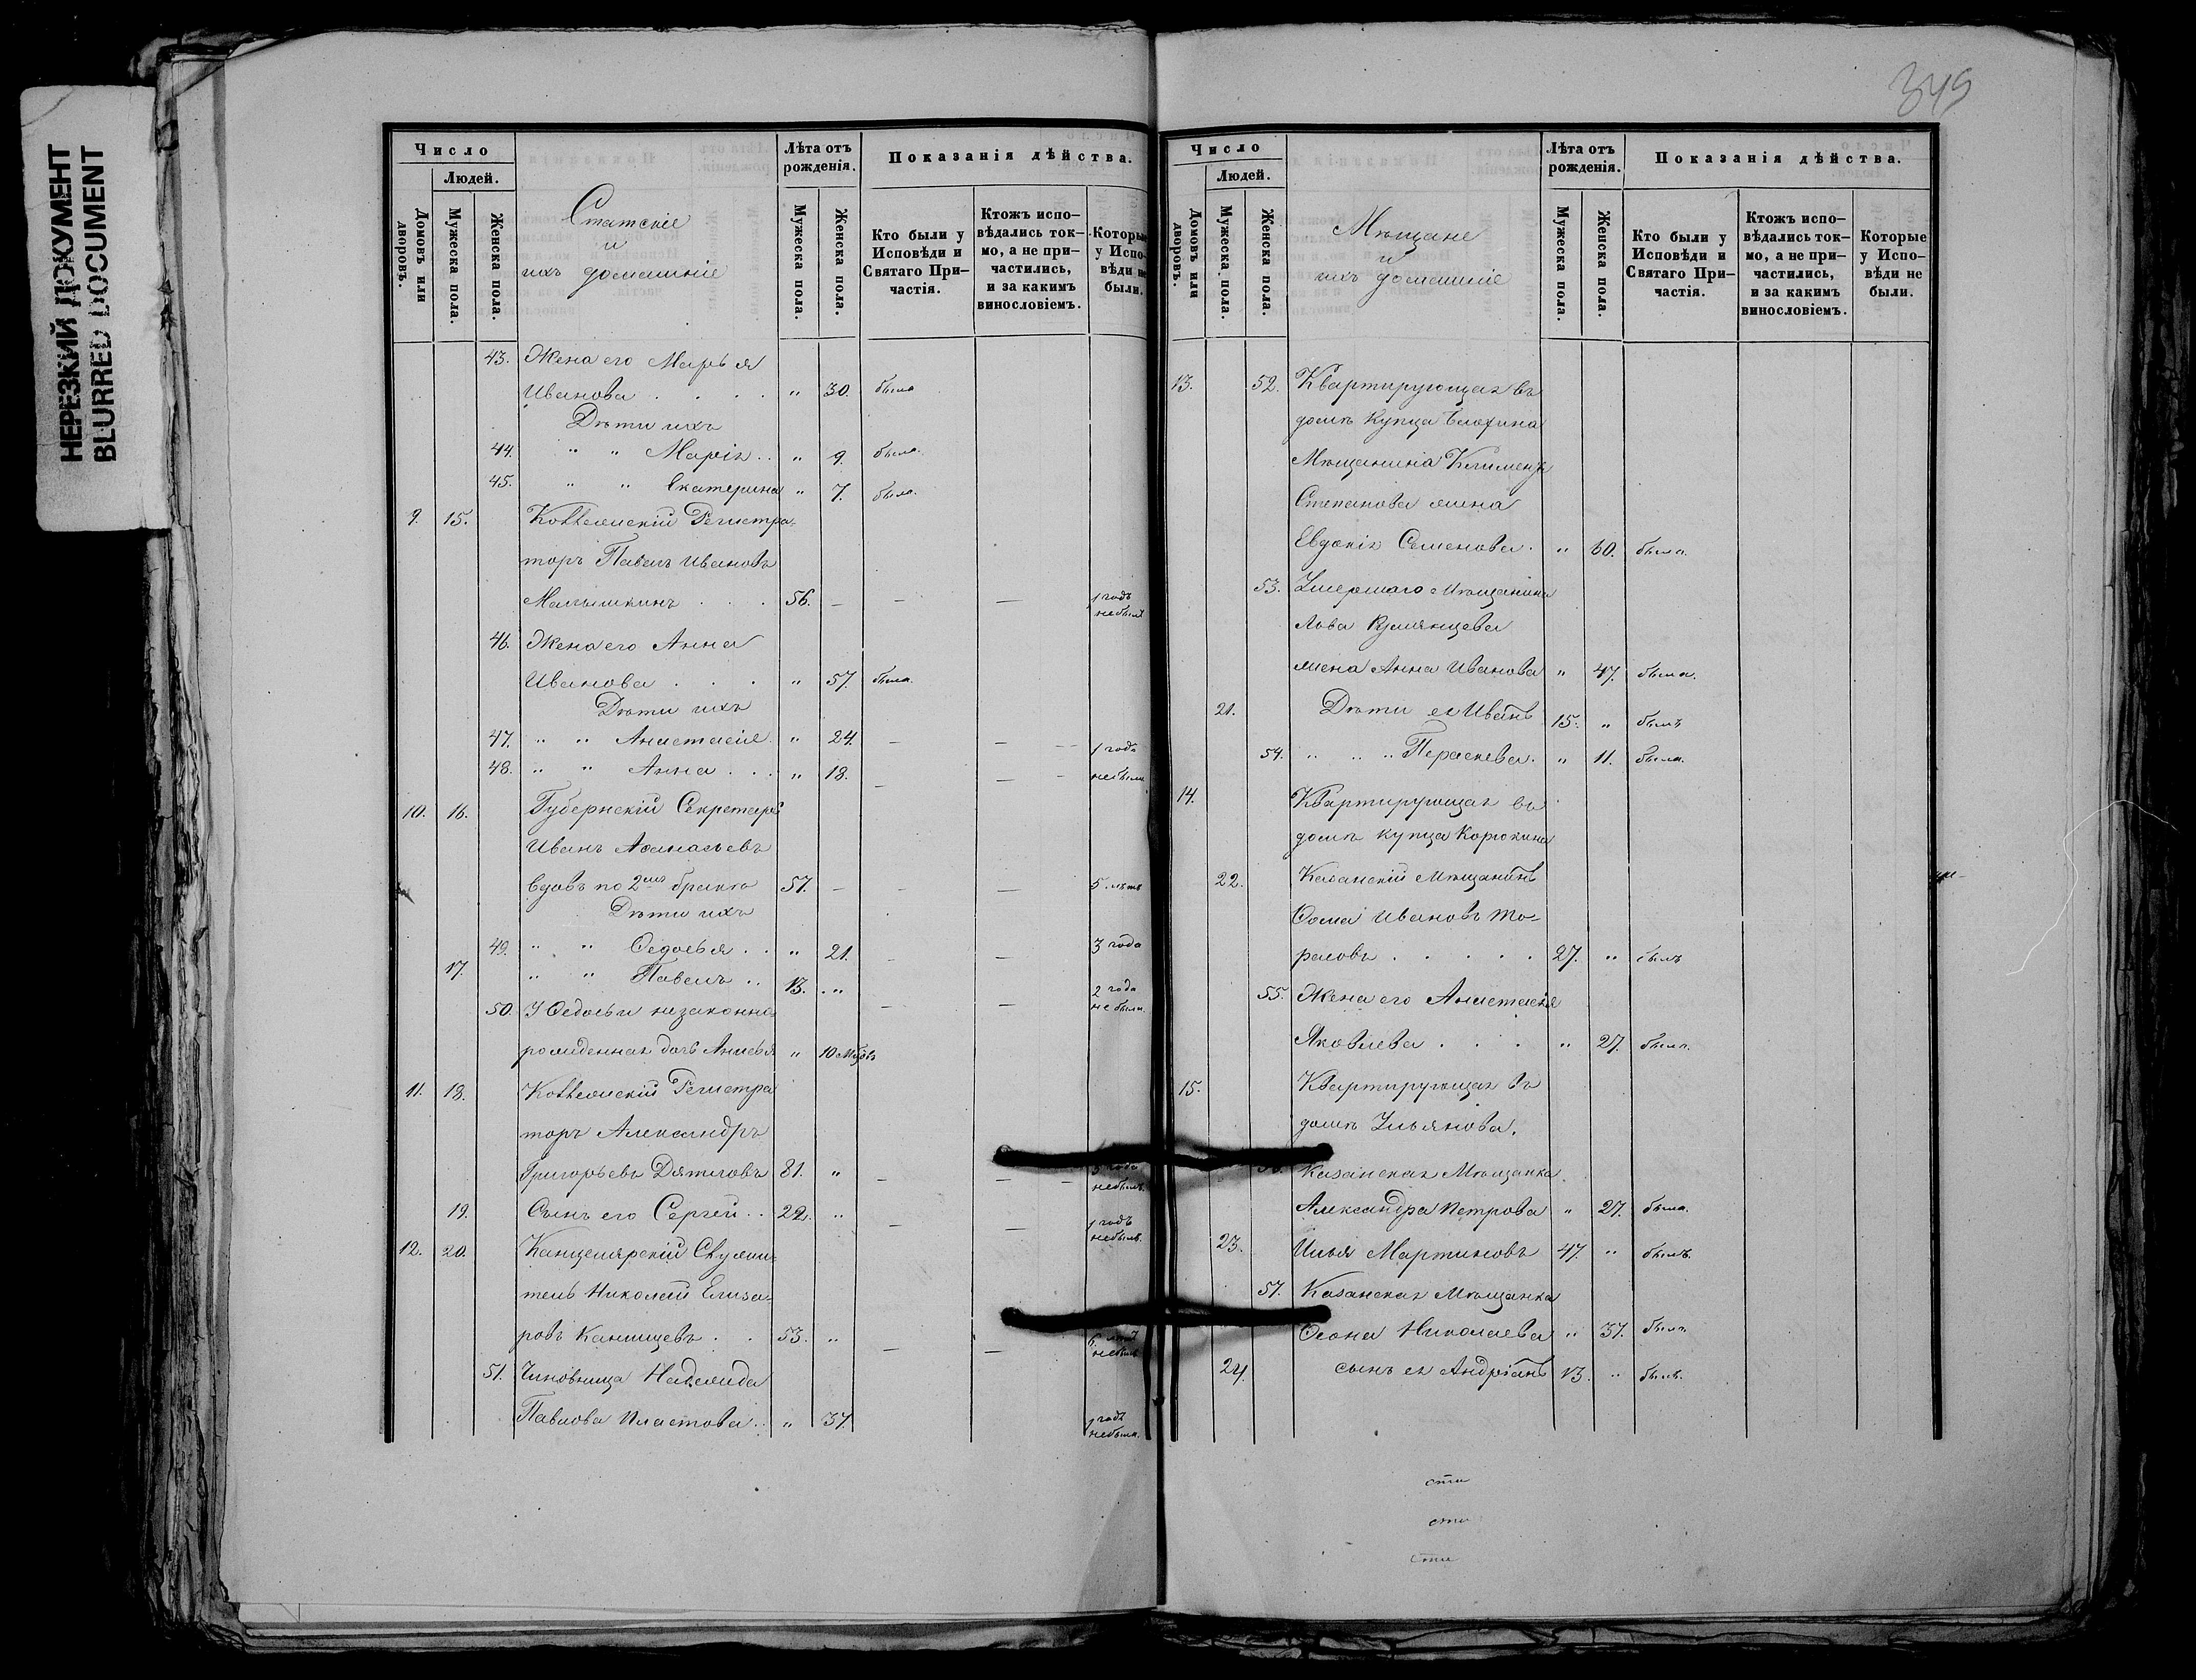 НЕРЕЗКИЙ ДОКУМЕНТ
BLURRED DOCUMENT
Число
Людей.
Домовъ или дворовъ.
Мужеска пола.
Женска пола.
Статскіе
и
ихъ домашніе
Лѣта отъ рожденія.
Мужеска пола.
Женска пола.
Показанія дѣйства.
Кто были у Исповѣди и Святаго Причастія.
Ктожъ исповѣдались токмо, а не причастились, и за какимъ винословіемъ.
Которые у Исповѣди не были.
43. Жена его Марья
Иванова . . . . " 30. была
Дѣти ихъ
44. " " Марія . . " 9. была.
45. " " Екатерина " 7. была.
9. 15. Коллежскій Регистра-
торъ Павелъ Ивановъ
Малышкинъ . . . 56. – – – 1 годъ небылъ
46. Жена его Анна
Иванова . . . " 57. была.
Дѣти ихъ
47. " " Анастасія " 24. – – 1 годъ
48. " " Анна . . . " 18. – – небыли
10. 16. Губернскій Секретарь
Иванъ Аѳанасьевъ
вдовъ по 2мъ бракѣ 57. – – – 5 лѣтъ
Дѣти ихъ
49. " " Ѳедосья . . " 21. – – 3 года
17. " " Павелъ . . 13. " 2 года
50. У Ѳедосьи незаконно- – – не были.
рожденная дочь Анисья " 10 м-цовъ
11. 18. Коллежскій Регистра
торъ Александръ
Григорьевъ Дятловъ 81. " – – – 3 года небылъ.
19. Сынъ его Сергей . . 22. " – – 1 годъ небылъ.
12. 20. Канцелярскій Служи-
тель Николай Елиза-
ровъ Канищевъ . . 53. " – – 6 лѣтъ небылъ
51. Чиновница Надежда
Павлова Пластова . . " 37. 1 годъ небыла.
349
Число
Людей.
Домовъ или дворовъ.
Мужеска пола.
Женска пола.
Мѣщане
и
ихъ домашніе
Лѣта отъ рожденія.
Мужеска пола.
Женска пола.
Показанія дѣйства.
Кто были у Исповѣди и Святаго Причастія.
Ктожъ исповѣдались токмо, а не причастились, и за какимъ винословіемъ.
Которые у Исповѣди не были.
13. 52. Квартирующая въ
домѣ Купца
Мѣщанина
Степанова жена
Евдокія Семенова . " 60. была.
53. Умершаго Мѣщанина
Льва Румянцева
жена Анна Иванова " 47. была.
21. Дѣти ея Иванъ 15. " былъ
54. " " " Параскева. " 11. была.
14. Квартирующая въ
домѣ купца Корюкина
22. Казанскій Мѣщанинъ
Ѳома Ивановъ То-
расовъ . . . . . 27. " былъ
55. Жена его Анастасія
Яковлева . . . " 27. была.
15. Квартирующая въ
домѣ Ульянова.
56. Казанская Мѣщанка
Александра Петрова " 27. была.
23. Илья Мартиновъ 47. " былъ.
57. Казанская Мѣщанка
Николаева " 37. была
24. сынъ ея Андріанъ 13. " былъ.
сти
сти
сти